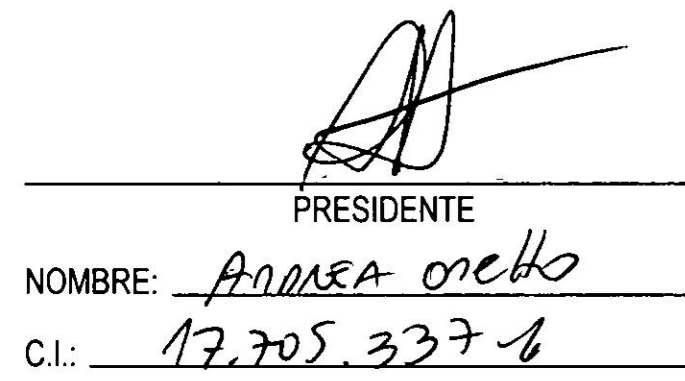 PRESIDENTE
NOMBRE: ANDREA Onetto
C.I.: 17.705.337-6